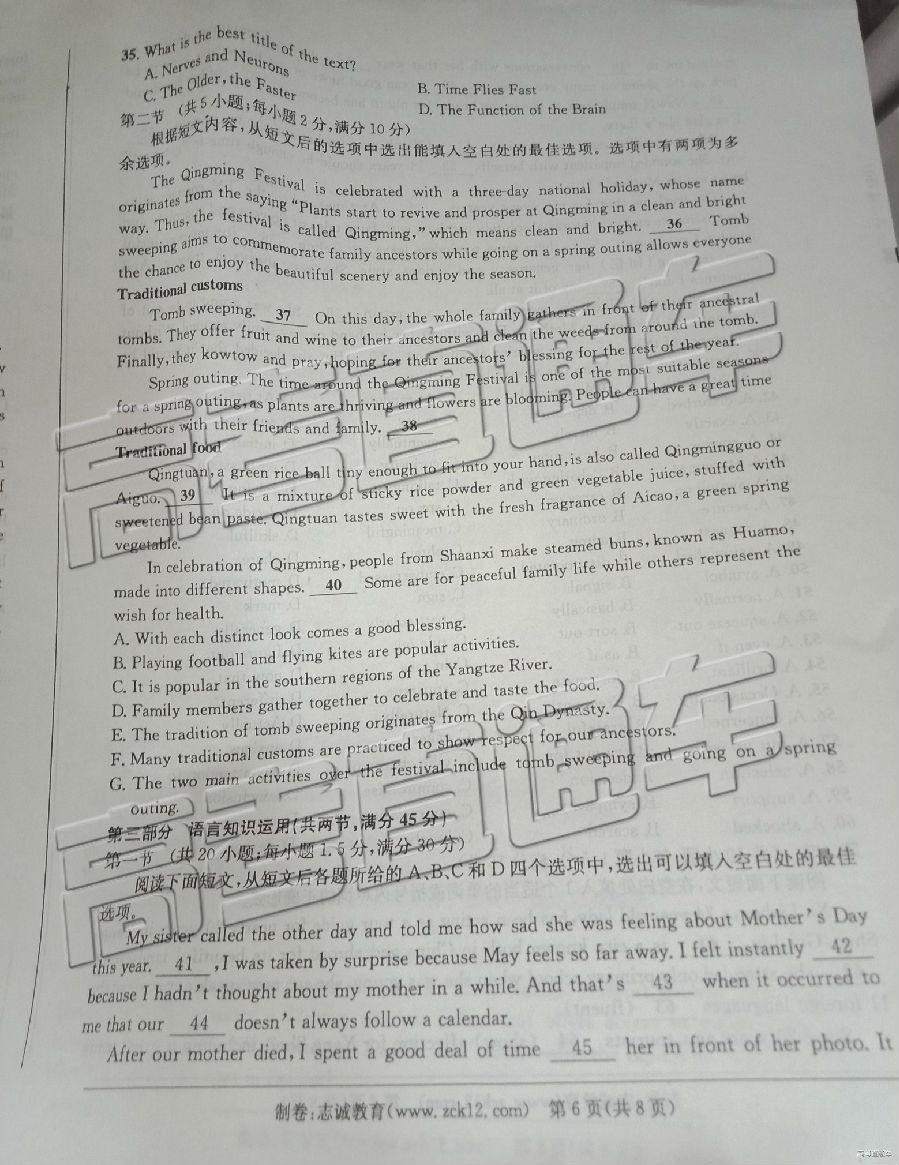 35. What is the best title of the text?
A. Nerves and Neurons
B. Time Flies Fast
C. The Older, the Faster
D. The Function of the Brain
第二节 (共5小题;每小题2分,满分10分)
根据短文内容,从短文后的选项中选出能填入空白处的最佳选项。选项中有两项为多
余选项。
The Qingming Festival is celebrated with a three-day national holiday, whose name
originates from the saying “Plants start to revive and prosper at Qingming in a clean and bright
way. Thus, the festival is called Qingming,” which means clean and bright. 36 Tomb
sweeping aims to commemorate family ancestors while going on a spring outing allows everyone
the chance to enjoy the beautiful scenery and enjoy the season.
Traditional customs
Tomb sweeping. 37 On this day, the whole family gathers in front of their ancestral
tombs. They offer fruit and wine to their ancestors and clean the weeds from around the tomb.
Finally, they kowtow and pray, hoping for their ancestors’ blessing for the rest of the year.
Spring outing. The time around the Qingming Festival is one of the most suitable seasons
for a spring outing, as plants are thriving and flowers are blooming. People can have a great time
outdoors with their friends and family. 38
Traditional food
Qingtuan, a green rice ball tiny enough to fit into your hand, is also called Qingmingguo or
Aiguo. 39 It is a mixture of sticky rice powder and green vegetable juice, stuffed with
sweetened bean paste. Qingtuan tastes sweet with the fresh fragrance of Aicao, a green spring
vegetable.
In celebration of Qingming, people from Shaanxi make steamed buns, known as Huamo,
made into different shapes. 40 Some are for peaceful family life while others represent the
wish for health.
A. With each distinct look comes a good blessing.
B. Playing football and flying kites are popular activities.
C. It is popular in the southern regions of the Yangtze River.
D. Family members gather together to celebrate and taste the food.
E. The tradition of tomb sweeping originates from the Qin Dynasty.
F. Many traditional customs are practiced to show respect for our ancestors.
G. The two main activities over the festival include tomb sweeping and going on a spring
outing.
第三部分 语言知识运用(共两节,满分45分)
第一节 (共20小题;每小题1.5分,满分30分)
阅读下面短文,从短文后各题所给的A、B、C和D四个选项中,选出可以填入空白处的最佳
选项。
My sister called the other day and told me how sad she was feeling about Mother’s Day
this year. 41 , I was taken by surprise because May feels so far away. I felt instantly 42
because I hadn’t thought about my mother in a while. And that’s 43 when it occurred to
me that our 44 doesn’t always follow a calendar.
After our mother died, I spent a good deal of time 45 her in front of her photo. It
制卷:志诚教育(www.zck12.com) 第6页(共8页)